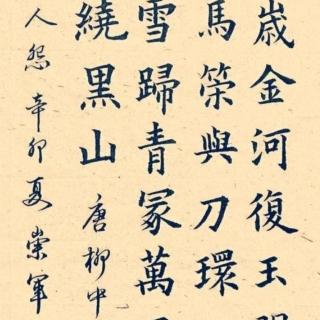 歲金河復玉
馬策與刀環
雪歸青冢萬
繞黑山 唐柳中
人怨 辛卯夏 崇軍